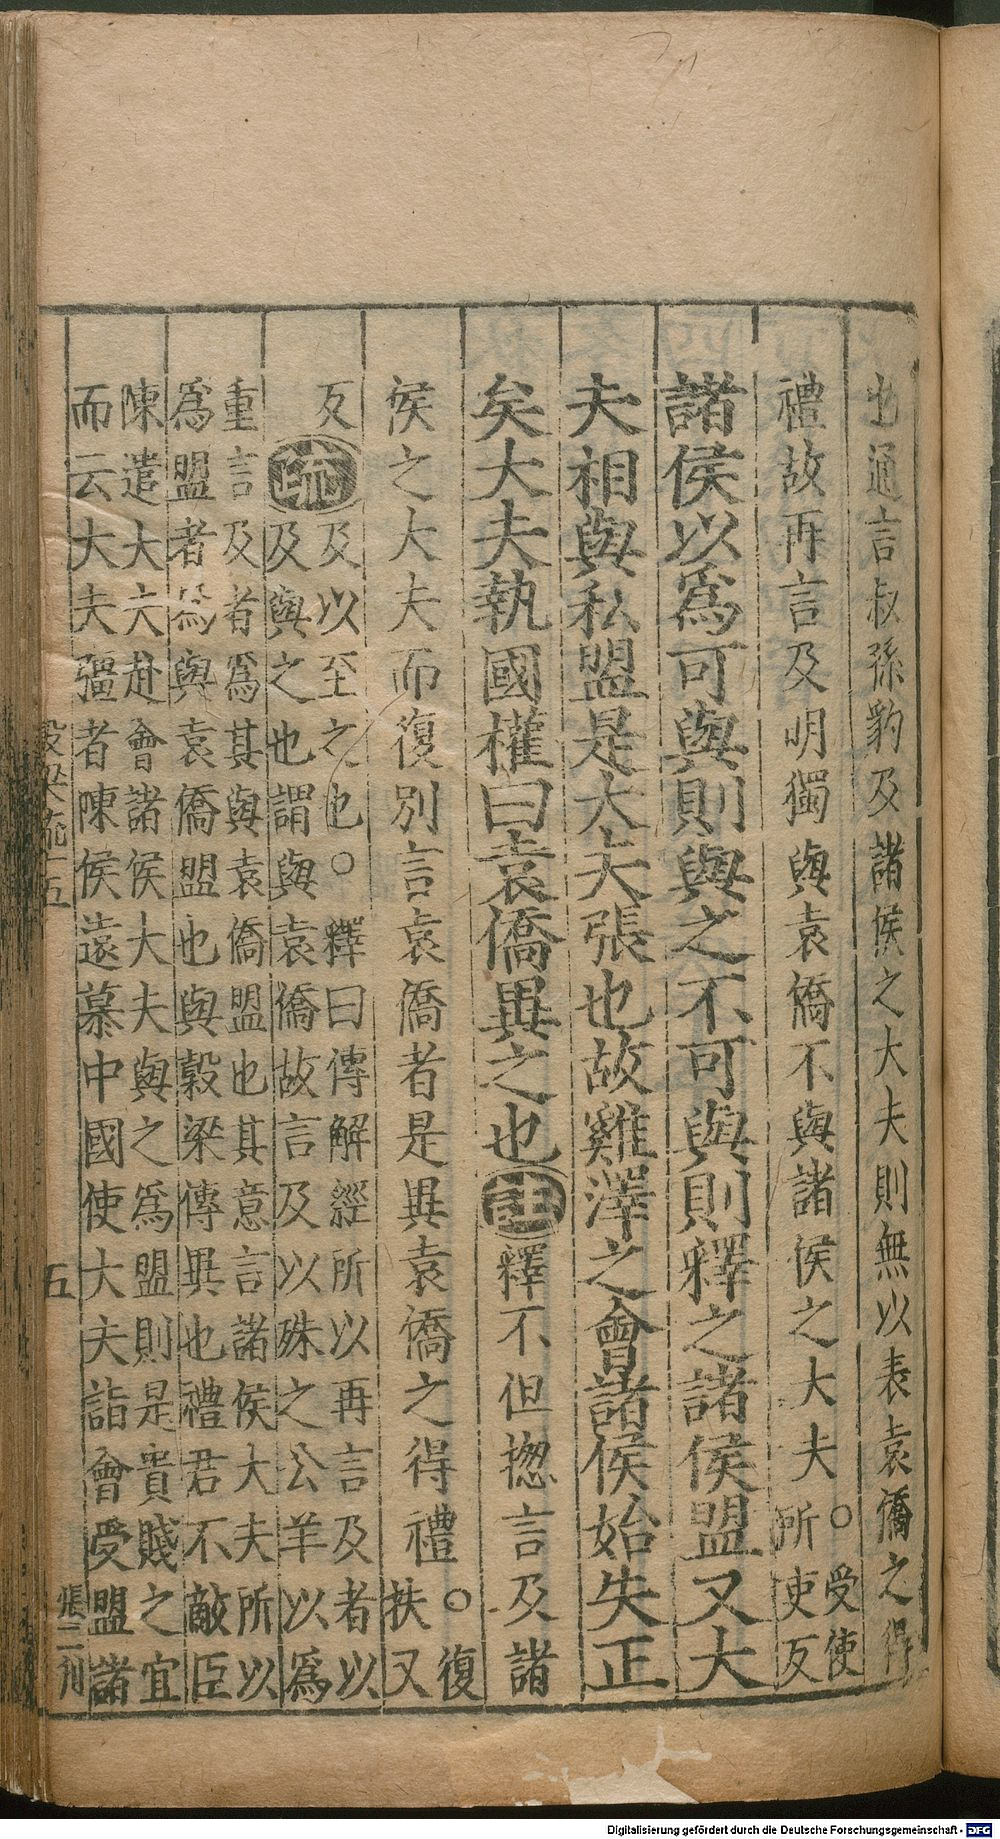 也通言叔孫豹及諸侯之大夫則無以表袁僑之得
禮故再言及明獨與袁僑不與諸侯之大夫○受使
所吏反
諸侯以爲可與則與之不可與則釋之諸侯盟又大
夫相與私盟是大夫張也故雞澤之會諸侯始失正
矣大夫執國權曰袁僑異之也註釋不但揔言及諸
侯之大夫而復別言袁僑者是異袁僑之得禮○復
扶又
反
疏
及以至之也○釋曰傳解經所以再言及者以
及與之也謂與袁僑故言及以殊之公羊以爲
重言及者爲其與袁僑盟也其意言諸侯大夫所以
爲盟者爲與袁僑盟也與穀梁傳異也禮君不敵臣
陳遣大夫赴會諸侯大夫與之爲盟則是貴賤之宜
而云大夫彊者陳侯遠慕中國使大夫詣會受盟諸
穀梁疏十五
五
張二刊
Digitalisierung gefördert durch die Deutsche Forschungsgemeinschaft - DFG